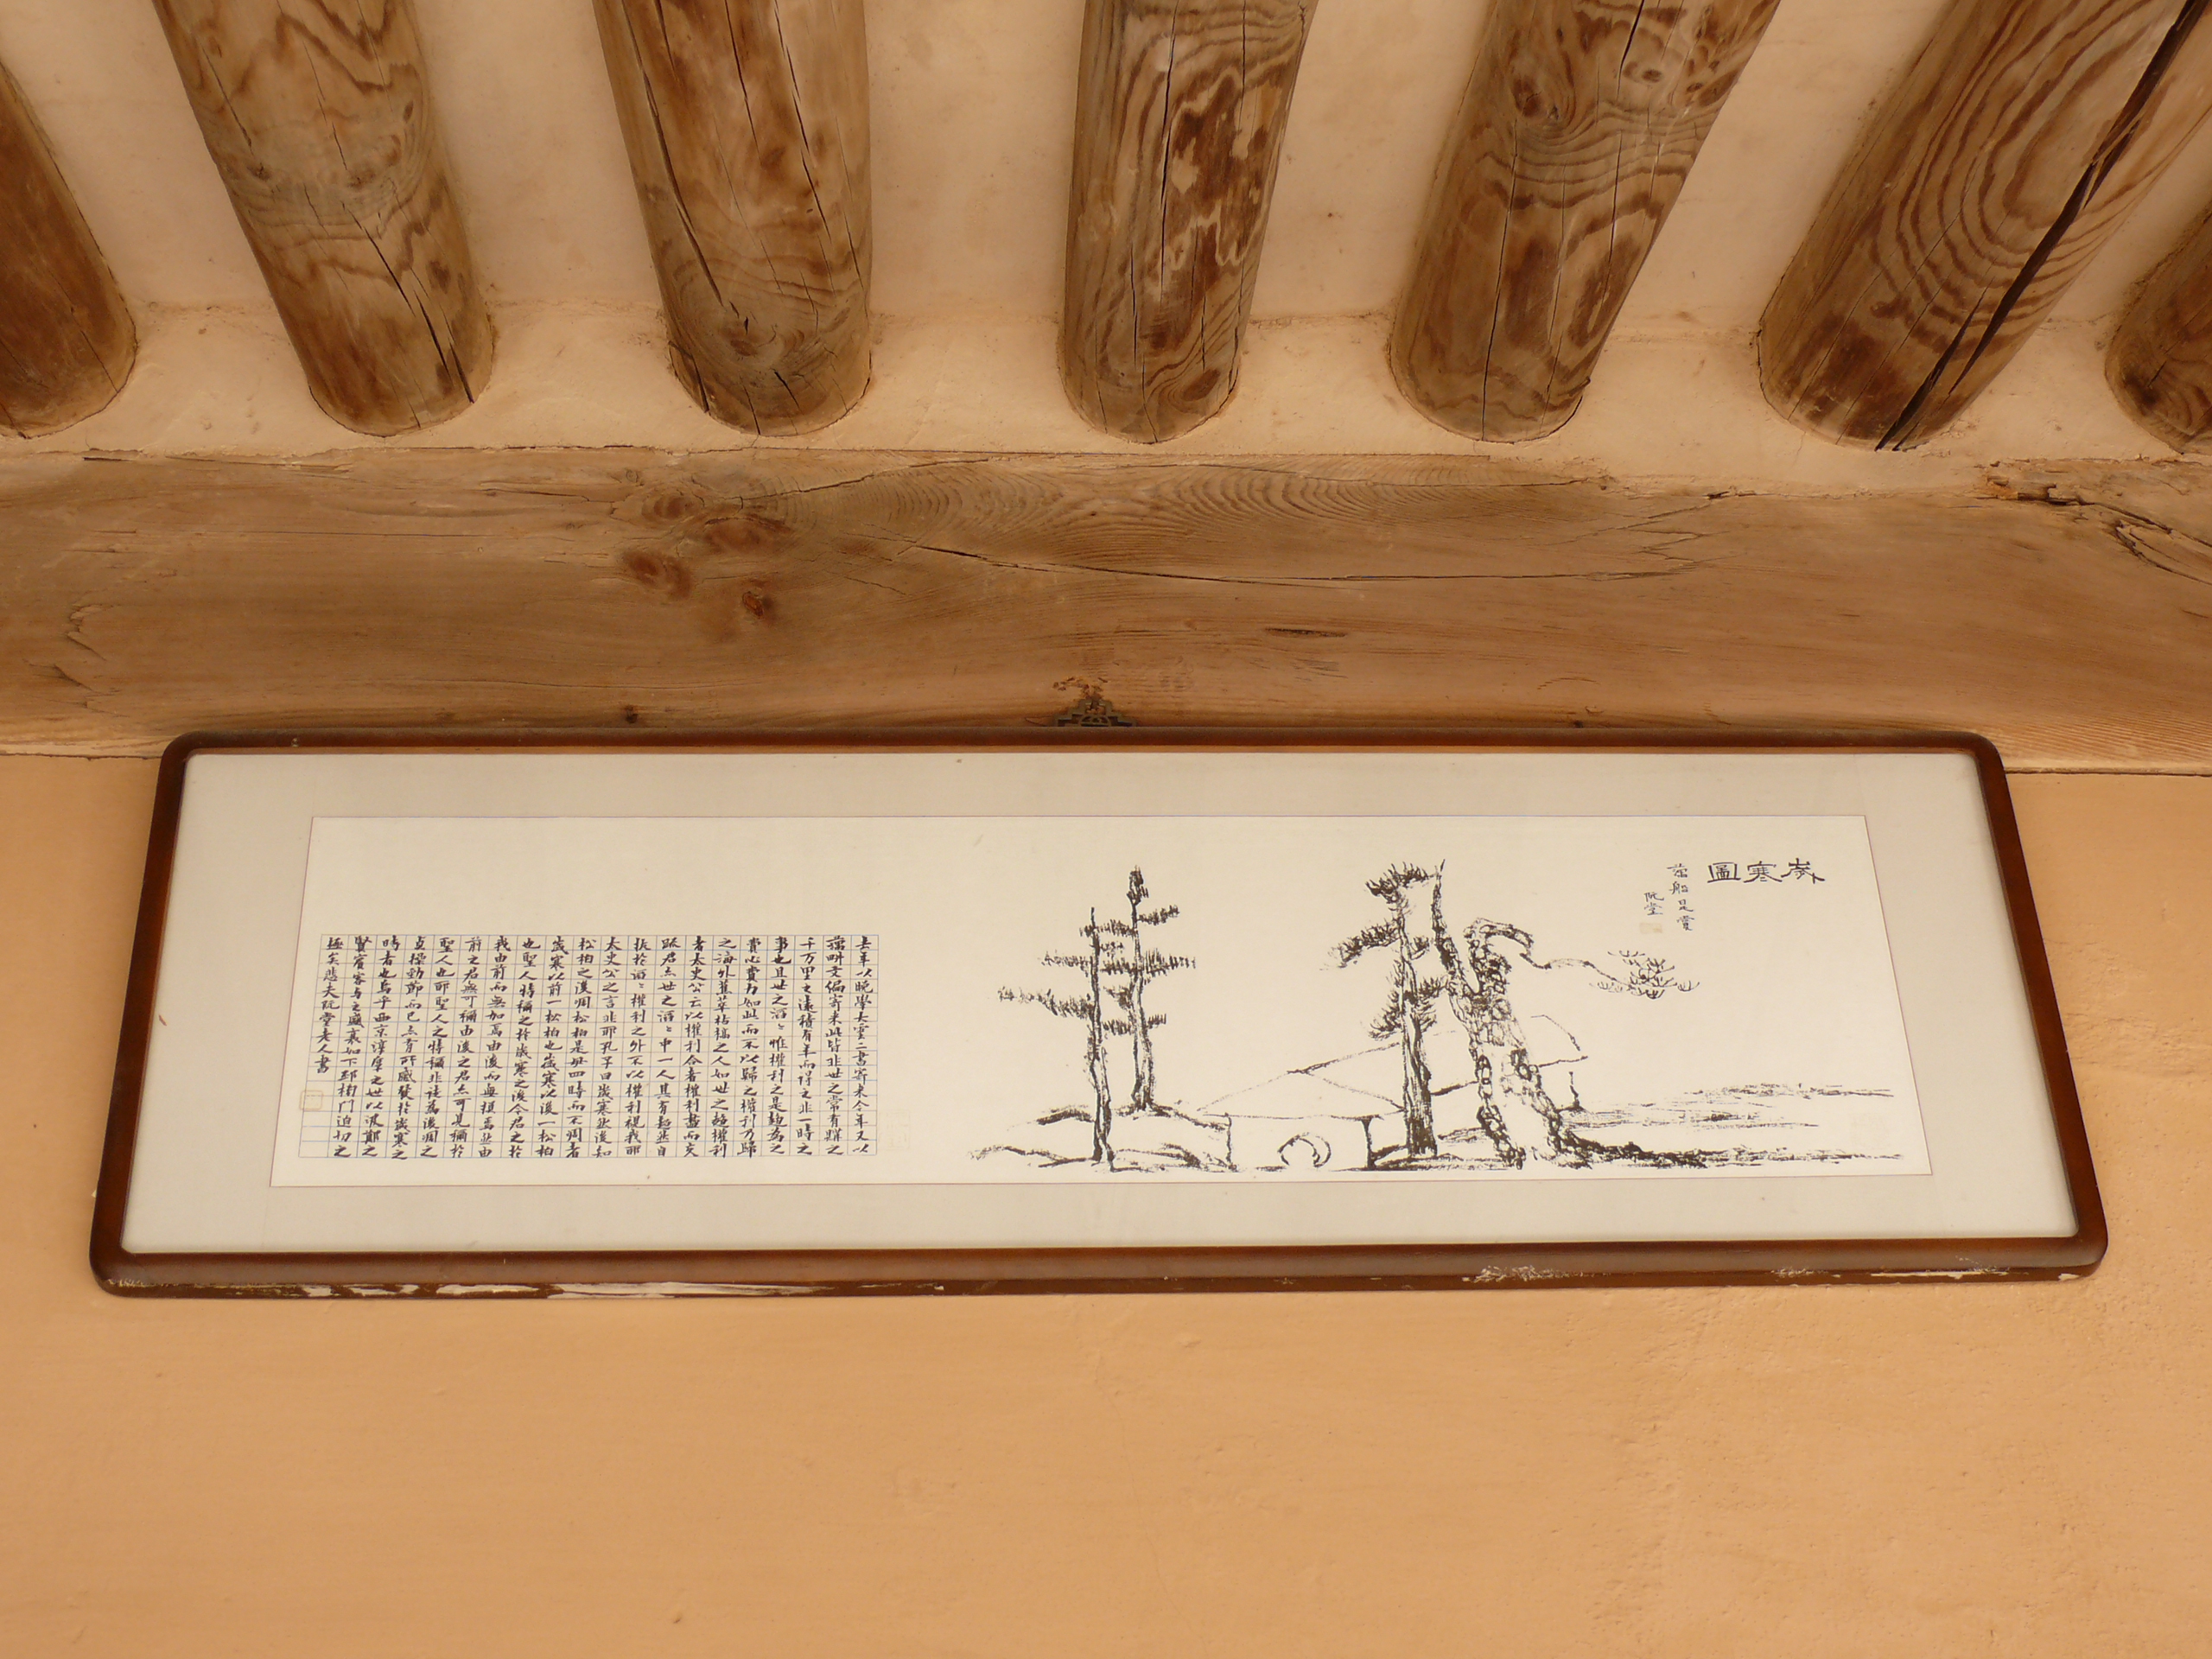 歲寒圖
藕船是賞
阮堂
去年以晚學大雲二書寄來今年又以
藕畊文編寄來此皆非世之常有購之
千万里之遠積有年而得之非一時之
事也且世之滔〻惟權利之是趨為之
費心費力如此而不以歸之權利乃歸
之海外蕉萃枯槁之人如世之趨權利
者太史公云以權利合者權利盡而交
踈君亦世之滔〻中一人其有超然自
拔於滔〻權利之外不以權利視我耶
太史公之言非耶孔子曰歲寒然後知
松柏之後凋松柏是毋四時而不凋者
歲寒以前一松柏也歲寒以後一松柏
也聖人特稱之於歲寒之後今君之於
我由前而無加焉由後而無損焉然由
前之君無可稱由後之君亦可見稱於
聖人也耶聖人之特稱非徒為後凋之
貞操勁節而已亦有所感發於歲寒之
時者也烏乎西京淳厖之世以汲鄭之
賢賓客与之盛衰如下邳榜門迫切之
極矣悲夫阮堂老人書